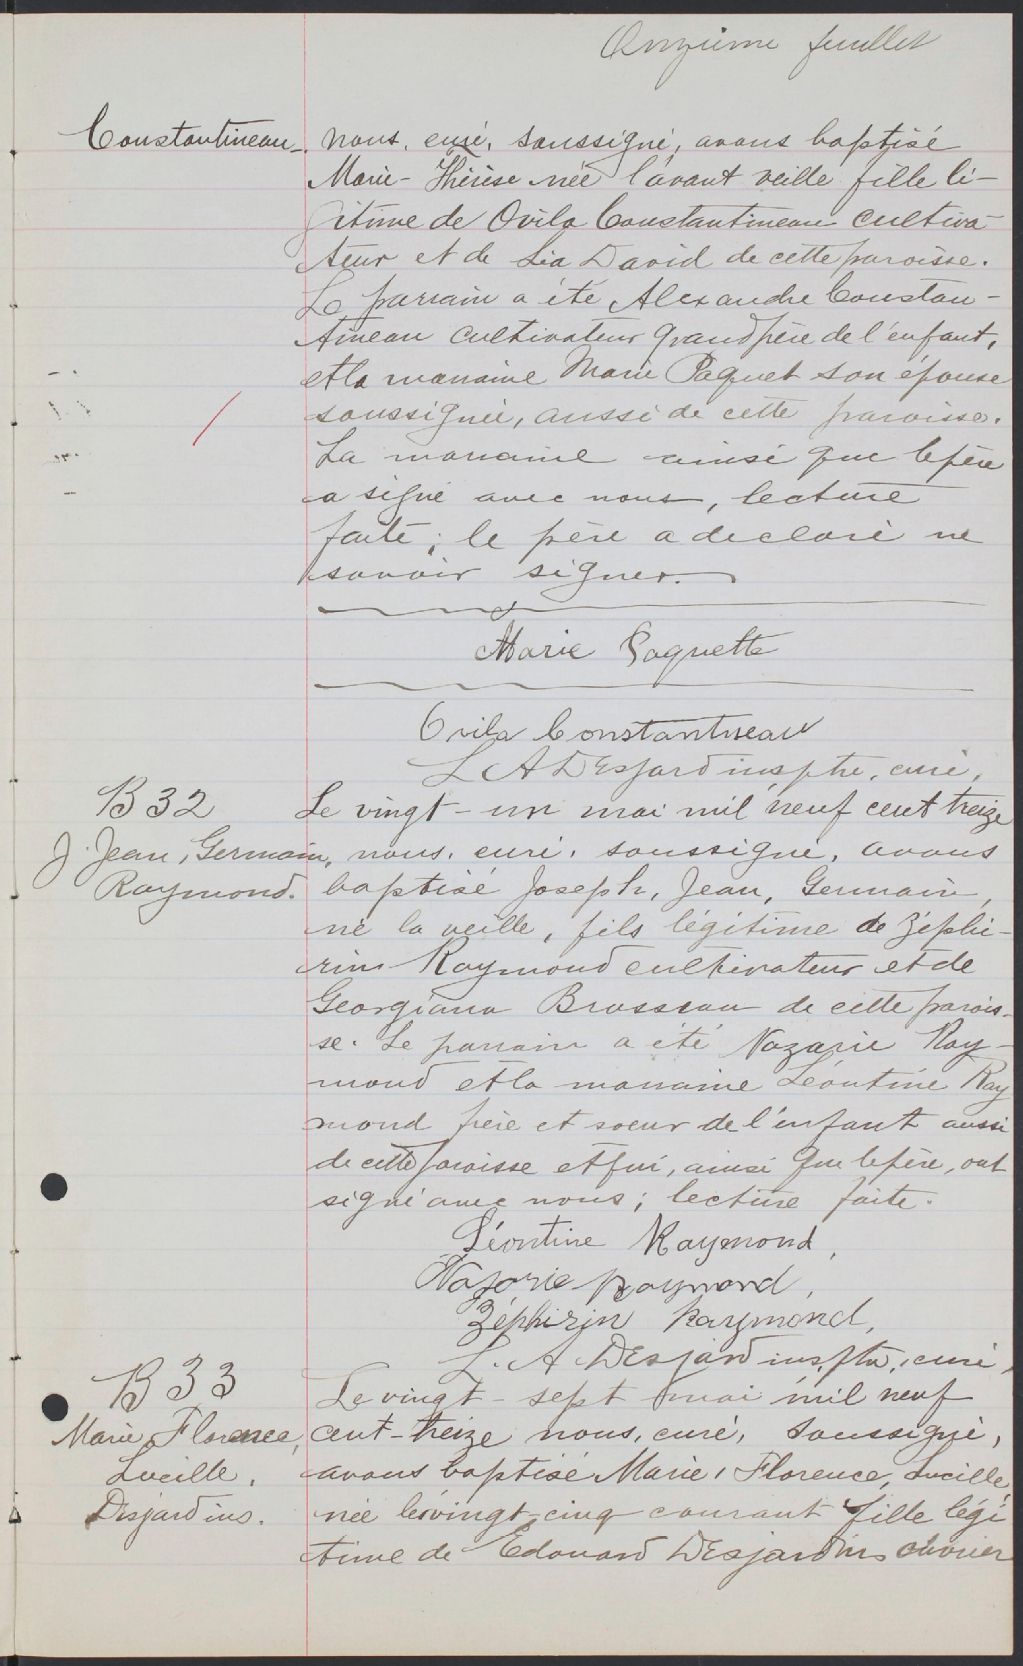 Onzième feuillet
Constantineau. nous, curé, soussigné, avons baptisé
Marie-Thérèse née l'avant veille fille lé-
gitime de Ovila Constantineau cultiva-
teur et de Lia David de cette paroisse.
Le parrain a été Alexandre Constan-
tineau cultivateur grandpère de l'enfant,
et la marraine Marie Paquet son épouse
soussignée, aussi de cette paroisse.
La marraine ainsi que le père
a signé avec nous, lecture
faite; le père a declaré ne
savoir signer.
Marie Paquette
Ovila Constantineau
L A Desjardins ptre, curé,
B 32
Le vingt-un mai mil neuf cent treize
J. Jean, Germain, nous, curé, soussigné, avons
Raymond. baptisé Joseph, Jean, Germain,
né la veille, fils légitime de Zéphi-
rin Raymond cultivateur et de
Georgiana Brosseau de cette parois-
se. Le parrain a été Nazarie Ray-
mond et la marraine Léontine Ray
mond frère et soeur de l'enfant aussi
de cette paroisse et qui, ainsi que le père, ont
signé avec nous; lecture faite.
Léontine Raymond,
Nazarie Raymond,
Zéphirin Raymond,
L. A Desjardins, ptre, curé,
B 33
Le vingt-sept mai mil neuf
Marie, Florence, cent-treize nous, curé, soussigné,
Lucille, avons baptisé Marie, Florence, Lucille,
Desjardins. née le vingt-cinq courant fille légi
time de Edouard Desjardins ouvrier